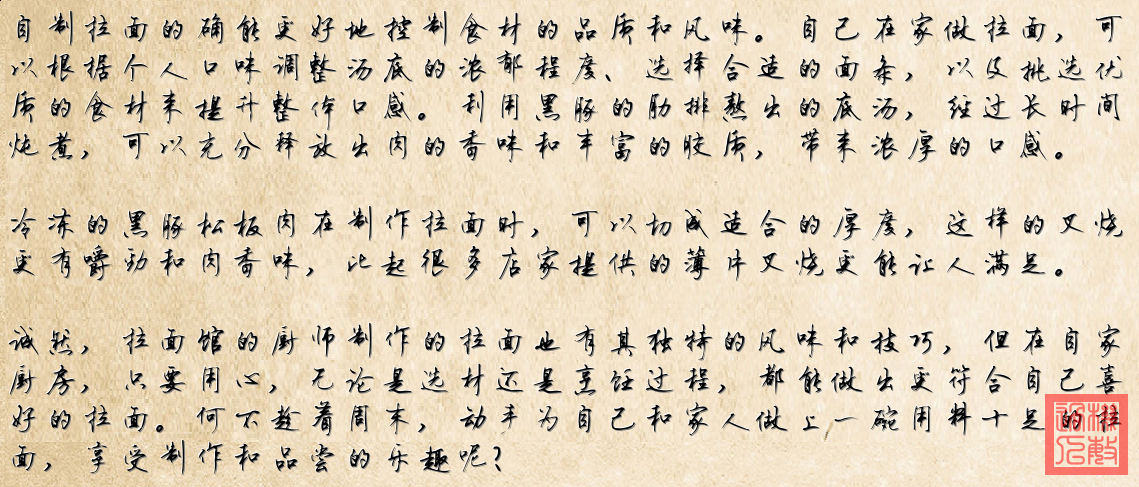 自制拉面的确能更好地控制食材的品质和风味。自己在家做拉面，可
以根据个人口味调整汤底的浓郁程度、选择合适的面条，以及挑选优
质的食材来提升整体口感。利用黑豚的肋排熬出的底汤，经过长时间
炖煮，可以充分释放出肉的香味和丰富的胶质，带来浓厚的口感。
冷冻的黑豚松板肉在制作拉面时，可以切成适合的厚度，这样的叉烧
更有嚼劲和肉香味，比起很多店家提供的薄片叉烧更能让人满足。
诚然，拉面馆的厨师制作的拉面也有其独特的风味和技巧，但在自家
厨房，只要用心，无论是选材还是烹饪过程，都能做出更符合自己喜
好的拉面。何不趁着周末，动手为自己和家人做上一碗用料十足的拉
面，享受制作和品尝的乐趣呢？